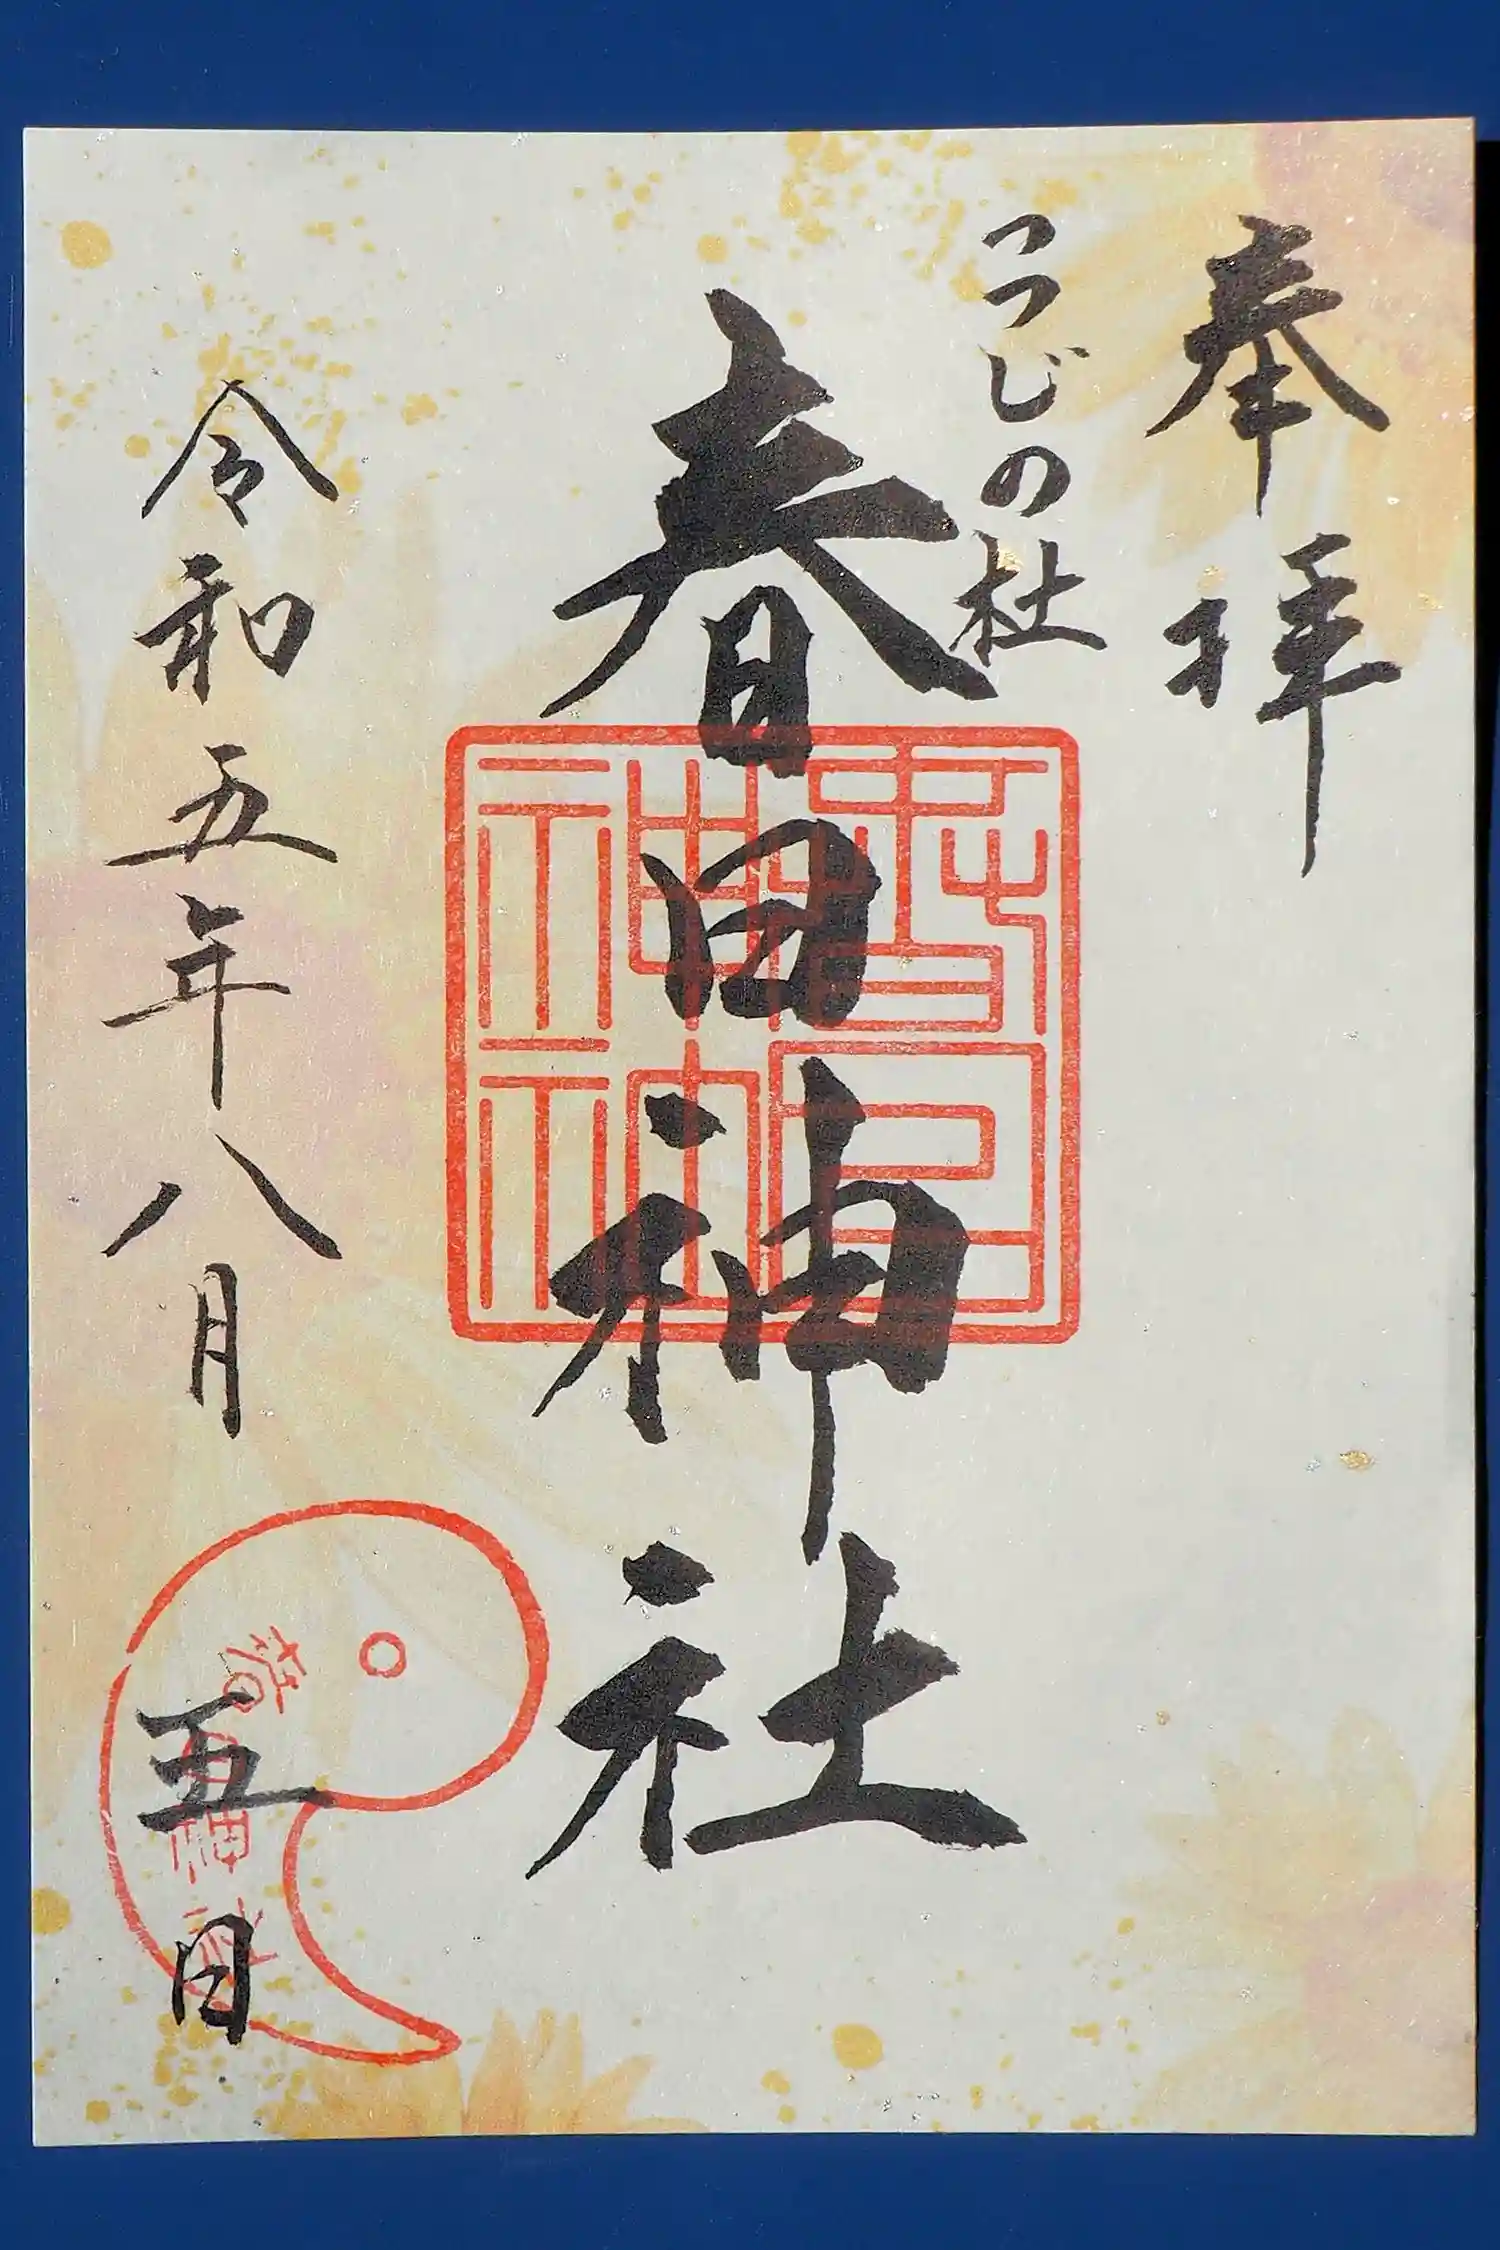 奉拝
つつじの杜
春日神社
春日神社
令和五年八月五日
春日神社